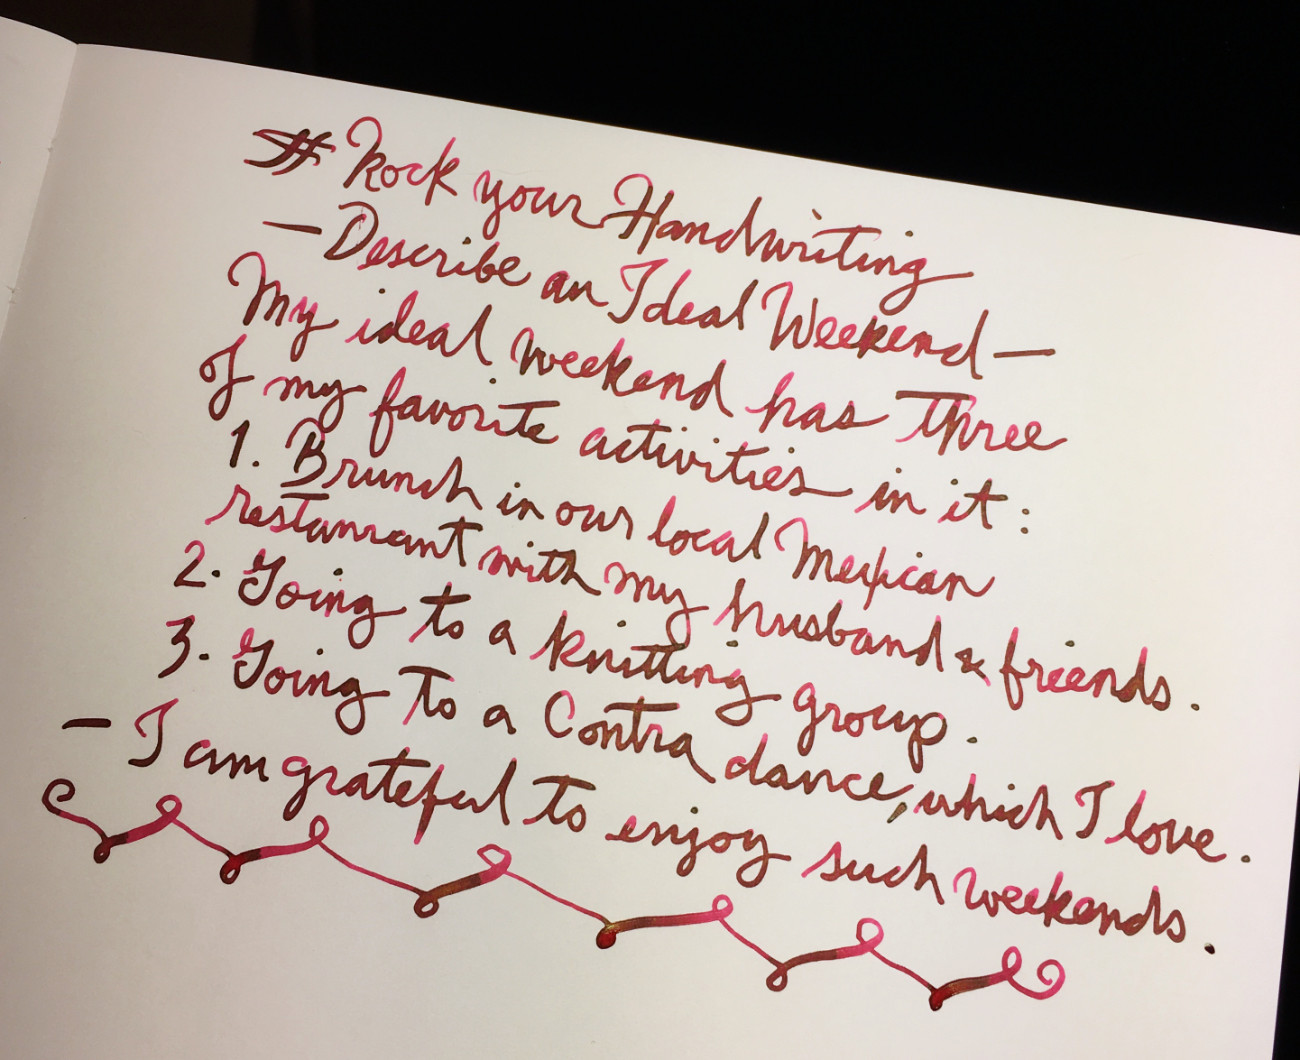 # Rock your Handwriting
— Describe an Ideal Weekend —
My ideal weekend has three
of my favorite activities in it:
1. Brunch in our local Mexican
restaurant with my husband & friends.
2. Going to a knitting group.
3. Going to a Contra dance, which I love.
— I am grateful to enjoy such weekends.